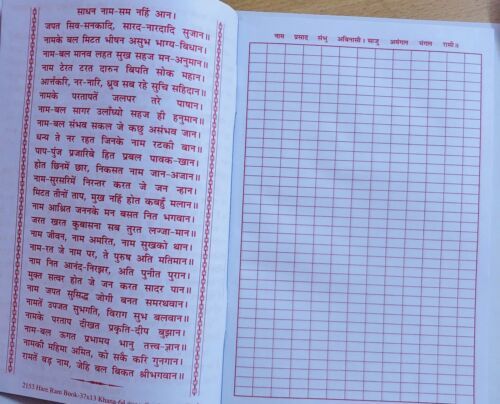 साधन नाम-सम नहिं आन।
जपत सिव-सनकादि, सारद-नारदादि सुजान॥
नामके बल मिटत भीषन असुभ भाग्य-बिधान।
नाम-बल मानव लहत सुख सहज मन-अनुमान॥
नाम टेरत टरत दारुन बिपति सोक महान।
आर्त्तकरि, नर-नारि, ध्रुव सब रहे सुचि सहिदान॥
नामके परतापतें जलपर तरे पाषान।
नाम-बल सागर उलाँघ्यो सहज ही हनुमान॥
नाम-बल संभव सकल जे कछु असंभव जान।
धन्य ते नर रहत जिनके नाम रटकी बान॥
पाप-पुंज प्रजारिबे हित प्रबल पावक-खान।
होत छिनमें छार, निकसत नाम जान-अजान॥
नाम-सुरसरिमें निरन्तर करत जे जन न्हान।
मिटत तीनों ताप, मुख नहिं होत कबहूँ मलान॥
नाम आश्रित जननके मन बसत नित भगवान।
जरत खरत कुबासना सब तुरत लज्जा-मान॥
नाम जीवन, नाम अमरित, नाम सुखको थान।
नाम-रत जे नाम पर, ते पुरुष अति मतिमान॥
नाम नित आनंद-निरझर, अति पुनीत पुरान।
मुक्त सत्वर होत जे जन करत सादर पान॥
नाम जपत सुसिद्ध जोगी बनत समरथवान।
नामतें उपजत सुभगति, विराग सुभ बलवान॥
नामके परताप दीखत प्रकृति-दीप बुझान।
नाम-बल ऊगत प्रभामय भानु तत्त्व-ज्ञान॥
नामकी महिमा अमित, को सकै करि गुनगान।
रामतें बड़ नाम, जेहि बल बिकत श्रीभगवान॥
2153 Hare Ram Book-37x13 Khana
नाम प्रसाद संभु अबिनासी। साजु अमंगल मंगल रासी॥